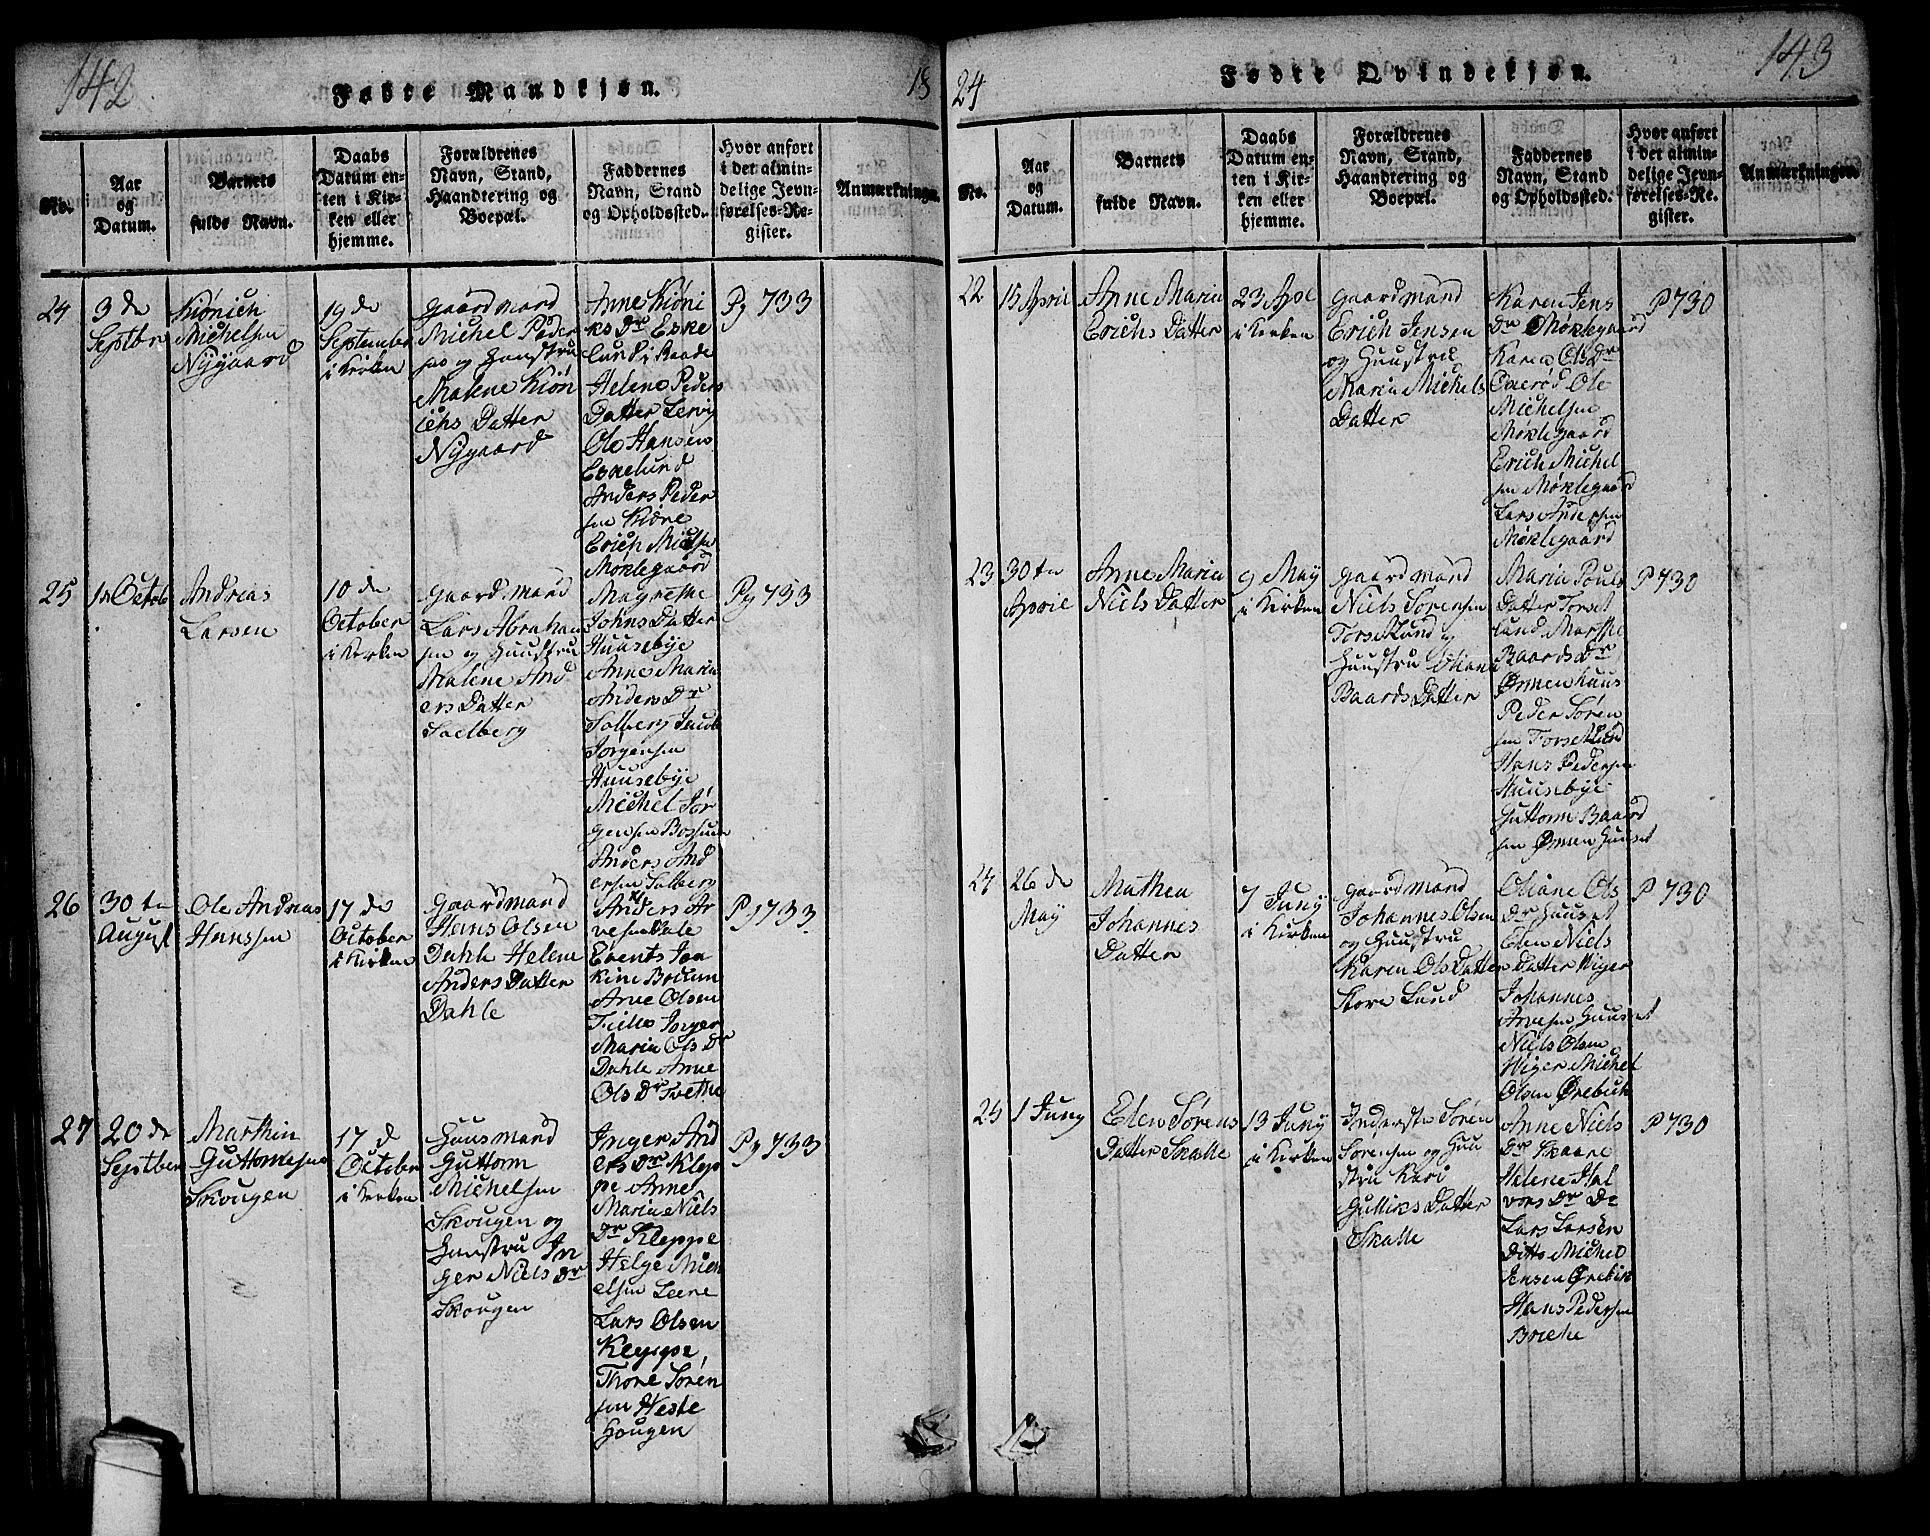 142
Fødte Mandkjøn.
18
No.
Aar
og
Datum.
Barnets
fulde Navn.
Daabs
Datum en-
ten i Kir-
ken eller
hjemme.
Forældrenes
Navn, Stand,
Haandtering og
Boepæl.
Faddernes
Navn, Stand
og Opholdssted.
Hvor anført
i det almin-
delige Jevn-
førelses-Re-
gister.
Anmærkninger.
24
3 de
Septbr
Kiönich
Michelsen
Nygaard
19 de
Septembr
i Kirken
Gaardmand
Michel Peder
sen og Huustru
Malene Kiön
ichs Datter
Nygaard
Anne Kiöni
ks Dr Eske
lund
Helene Peders
Datter Lervig
Ole Hansen
Eskelund
Anders Peder
sen
Erich Michelsen
Møklegaard
Pg 733
25
1 Octob
Andreas
Larsen
10 de
October
i Kirken
Gaardmand
Lars Abraham
sen og Huustru
Malene And
ers Datter
Solberg
Magrethe
Johns Datter
Huusebye
Anne Maria
Anders Dr
Solberg Jacob
Jörgensen
Huusebye
Michel Jör
gensen
Anders And
ersen Solberg
Pg 733
26
30 te
August
Ole Andreas
Hanssen
17 de
October
i Kirken
Gaardmand
Hans Olsen
Dahle Helene
Anders Datter
Dahle
Anders Ar
vesen
Arne Olsen
Maria Ols Dr
Dahle Anne
Ols Dr Tvethe
Pg 733
27
20 de
Septber
Marthin
Guttormsen
Skougen
17 d
October
i Kirken
Huusmand
Guttorm
Michelsen
Skougen og
Huustru In
ger Niels Dr
Skougen
Inger And
ers Dr Klep
pe Anne
Maria Niels
Dr Kleppe
Helge Mich
elsen Leere
Lars Olsen
Kleppe,
Thore Sören
sen Weste
Hougen
Pg 733
24
Fødte Qvindekjøn.
143
No.
Aar
og
Datum.
Barnets
fulde Navn.
Daabs
Datum en-
ten i Kir-
ken eller
hjemme.
Forældrenes
Navn, Stand,
Haandtering og
Boepæl.
Faddernes
Navn, Stand
og Opholdssted.
Hvor anført
i det almin-
delige Jevn-
førelses-Re-
gister.
Anmærkninger.
22
15 April
Anne Maria
Erichs Datter
23 Apl
i Kirken
Gaardmand
Erich Jensen
og Huustru
Maria Michels
Datter
Karen Jens
Dr Møklegaard
Karen Ols Dr
Ole
Michelsen
Møklegaard
Erich Michel
sen Møklegaard
Lars Andersen
Møklegaard
P 730
23
30 te
April
Anne Maria
Niels Datter
9 May
i Kirken
Gaardmand
Niels Sörensen
Forsetlund og
Huustru Oliana
Baards Datter
Maria Pouls
Datter Forset
lund Marthe
Baards Dr
Ørmenhuus
Peder Sören
sen Forsetlund
Hans Pedersen
Huusebye
Guttorm Baard
sen Ørmenhuuset
P 730
24
26 de
May
Mathea
Johannes
Datter
7 Juny
i Kirken
Gaardmand
Johannes Olsen
og Huustru
Karen Ols Datter
Store Lund
Oliane Ols
Dr Huuset
Elen Niels
Datter Wiger
Johannes
Arvesen Huuset
Niels Olsen
Wiger Michel
Olsen Ørebek
P 730
25
1 Juny
Elen Sörens
Datter Skalle
13 Juny
i Kirken
Inderste Sören
Sörensen og Huu
stru Kari
Gulliks Datter
Skalle
Anne Niels
Dr Skaare
Helene Hal
vors Dr Do
Lars Larsen
Ditto Michel
Jensen Ørebek
Hans Pedersen
P 730